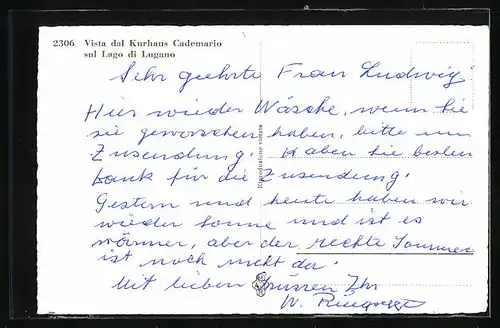 2306 Vista dal Kurhaus Cademario
sul Lago di Lugano
Sehr geehrte Frau Ludwig
Hier wieder Wäsche, wenn Sie
sie geworschen haben, bitte um
Zusendung. Haben Sie besten
Dank für die Zusendung.
Gestern und heute haben wir
wieder Sonne und ist es
wärmer, aber der rechte Sommer
ist noch nicht da.
Mit lieben Grüssen Ihr
W.
Riproduzione vietata